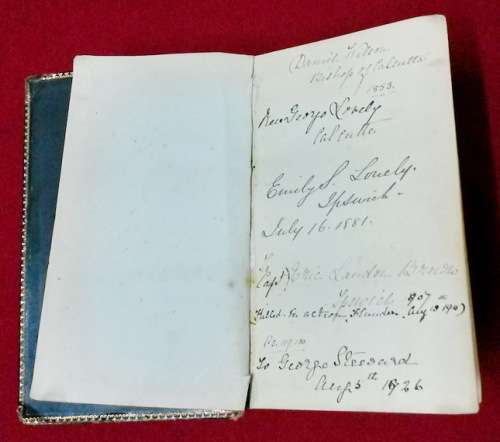 Daniel Wilson
Bishop of Calcutta
1853.
Rev George Lovely
Calcutta
Emily S. Lovely.
Ipswich
July 16. 1881.
To
Capt Eric Landon
Ipswich 1907
Killed in action, Flanders, Aug 1917)
To George Steward
Aug 5th 1926